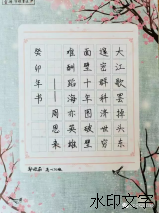 大江歌罢掉头东
邃密群科济世穷
面壁十年图破壁
难酬蹈海亦英雄
——周恩来
癸卯年书
水印文字